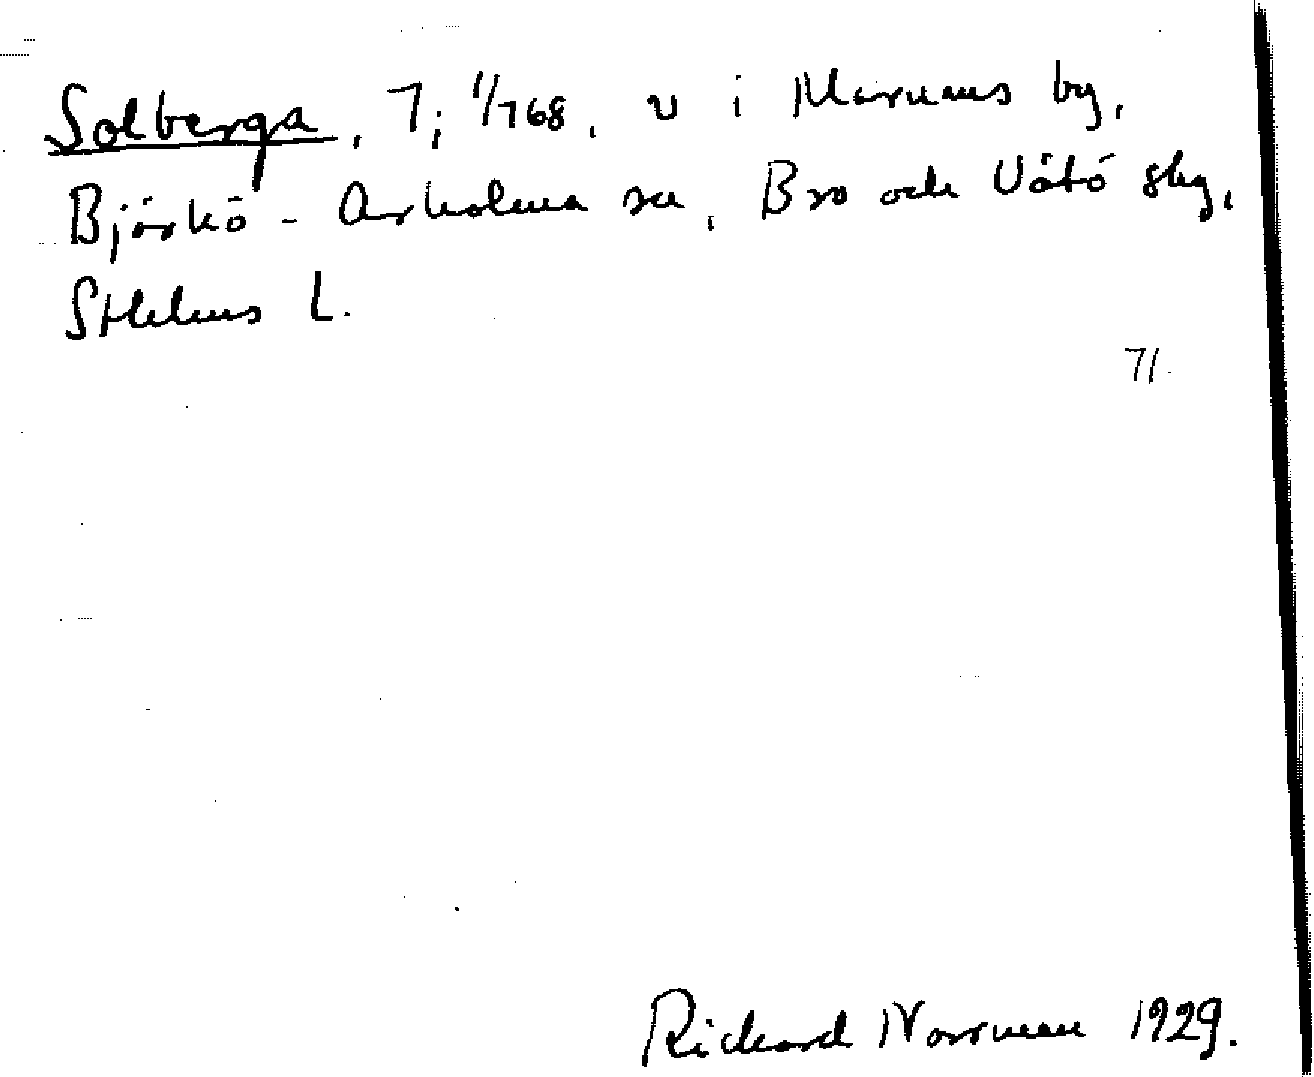 Solberga, T; 1/768, v i Marums by,
Björkö - Arholma sn, Bro och Vätö skg,
Sthlms L.
71
Richard Norrman 1929.